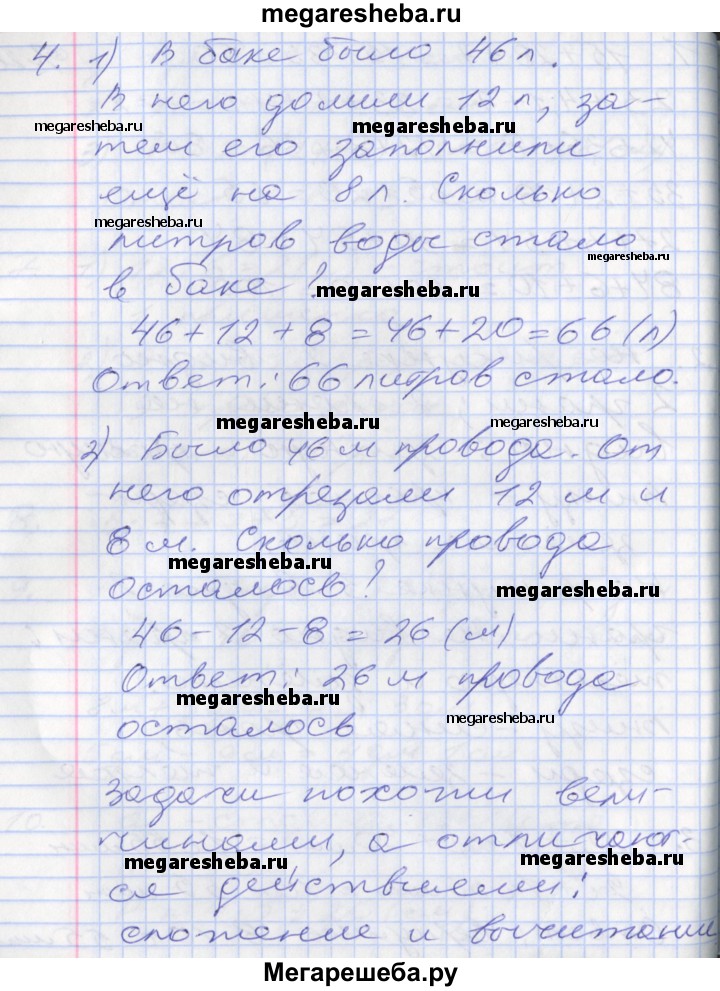 megaresheba.ru
4. 1) В баке было 46 л.
В него долили 12 л, за-
megaresheba.ru megaresheba.ru
тем его заполнили
ещё на 8 л. Сколько
megaresheba.ru
литров воды стало
megaresheba.ru
в баке?
megaresheba.ru
46+12+8=46+20=66 (л)
Ответ: 66 литров стало.
megaresheba.ru megaresheba.ru
2) Было 46 м провода. От
него отрезали 12 м и
8 м. Сколько провода
megaresheba.ru
осталось?
megaresheba.ru
46-12-8=26 (м)
Ответ: 26 м провода
megaresheba.ru
осталось
megaresheba.ru
Задачи похожи вели-
чинами, а отличают-
megaresheba.ru megaresheba.ru
ся действиями:
сложение и вычитание
Мегарешеба.ру